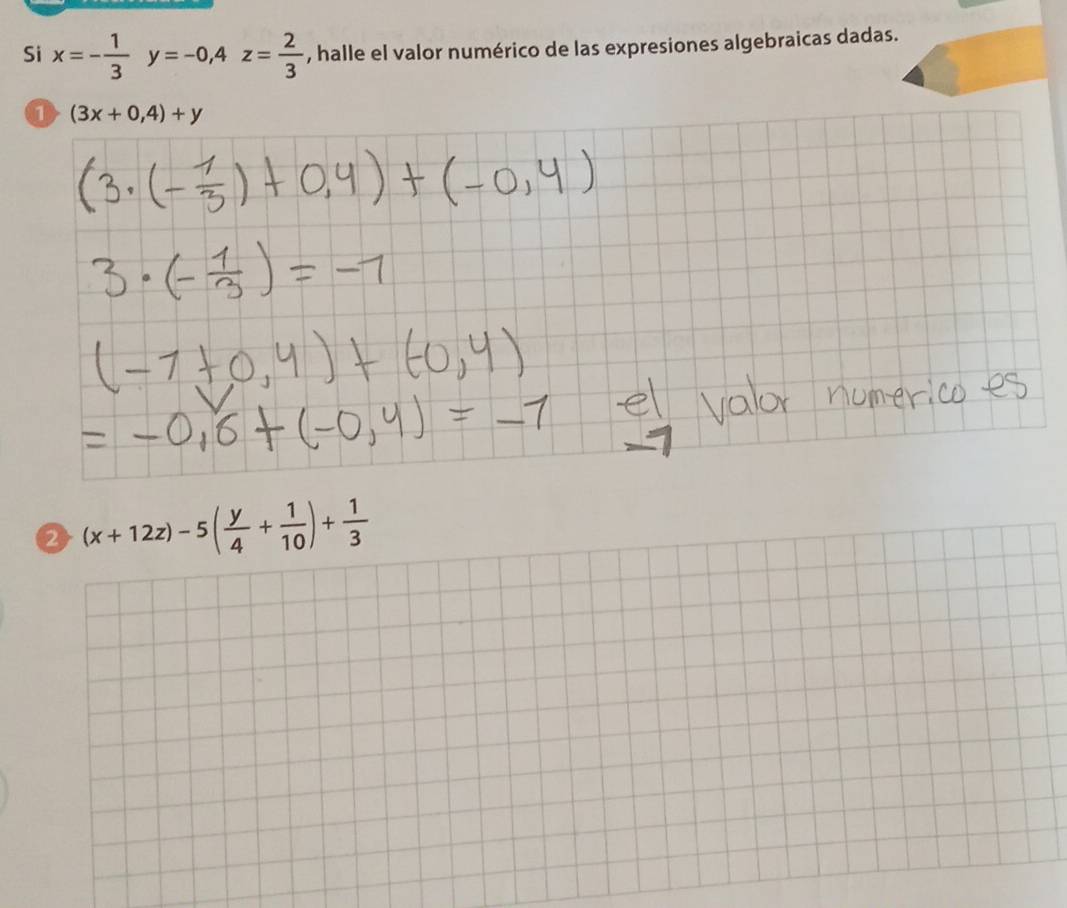 Si x = -1/3 y = -0,4 z = 2/3, halle el valor numérico de las expresiones algebraicas dadas.
1 (3x + 0,4) + y
(3·(-1/3) + 0,4) + (-0,4)
3·(-1/3) = -1
(-1+0,4) + (-0,4)
= -0,6 + (-0,4) = -1 el valor numerico es
-1
2 (x + 12z) - 5(y/4 + 1/10) + 1/3